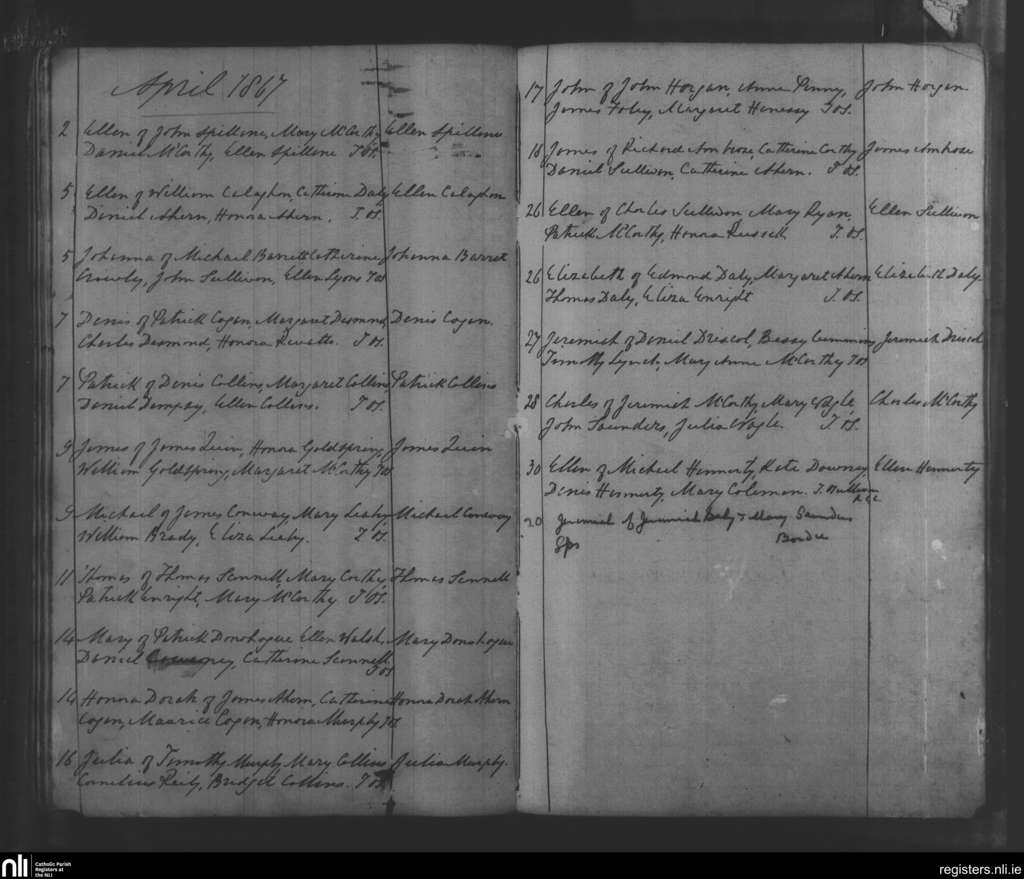 April 1867
2 Ellen of John Spillane, Mary McCarthy Ellen Spillane
Daniel McCarthy, Ellen Spillane T OS.
5 Ellen of William Calaghan, Catherine Daly Ellen Calaghan
Daniel Ahern, Honora Ahern. T. OS.
5 Johanna of Michael Barrett Catherine Johanna Barret
Crowly, John Sullivan, Ellen Lyons T OS
7 Denis of Patrick Cogan, Margaret Desmond, Denis Cogan.
Charles Desmond, Honora T OS.
7 Patrick of Denis Collins, Margaret Collins Patrick Collins
Daniel Dempsy, Ellen Collins. T OS.
9 James of James Quin, Honora Goldspring, James Quin
William Goldspring, Margaret McCarthy T OS
9 Michael of James Conway, Mary Leahy, Michael Conway
William Brady, Eliza Leahy. T OS.
11 Thomas of Thomas Scannell, Mary Carthy, Thomas Scannell
Patrick Enright, Mary McCarthy T OS.
14 Mary of Patrick Donohogue Ellen Walsh, Mary Donohogue
Daniel Catherine Scannell
T OS
14 Honora Dorah of James Ahern, Catherine Honora Dorah Ahern
Cogan, Maurice Cogan, Honora Murphy T OS
16 Julia of Timothy Murphy Mary Collins Julia Murphy.
Cornelius Reily, Bridget Collins. T OS.
17 John of John Horgan, Anne Penny, John Horgan
James Foley, Margaret Henessy T OS.
18 James of Richard Ambrose, Catherine Carthy James Ambrose
Daniel Sullivan, Catherine Ahern. T OS.
26 Ellen of Charles Sullivan Mary Ryan, Ellen Sullivan
Patrick McCarthy, Honora Russell T. OS.
26 Elizabeth of Edmond Daly, Margaret Ahern Elizabeth Daly
Thomas Daly, Eliza Enright T. OS.
27 Jeremiah of Daniel Driscol, Bessy Cummins Jeremiah Driscol
Timothy Lynch, Mary Anne McCarthy T OS
28 Charles of Jeremiah McCarthy Mary Nagle, Charles McCarthy
John Saunders, Julia Nagle. T OS.
30 Ellen of Michael Hennerty, Kate Downey, Ellen Hennerty
Denis Hennerty Mary Coleman. T. OSullivan
R.C.C.
20 Jeremiah of Jeremiah Daly & Mary Saunders
Sps
nli Catholic Parish
Registers at
the NLI
registers.nli.ie